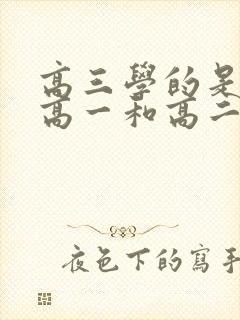 高三學的是
高一和高二
夜色下的寫手